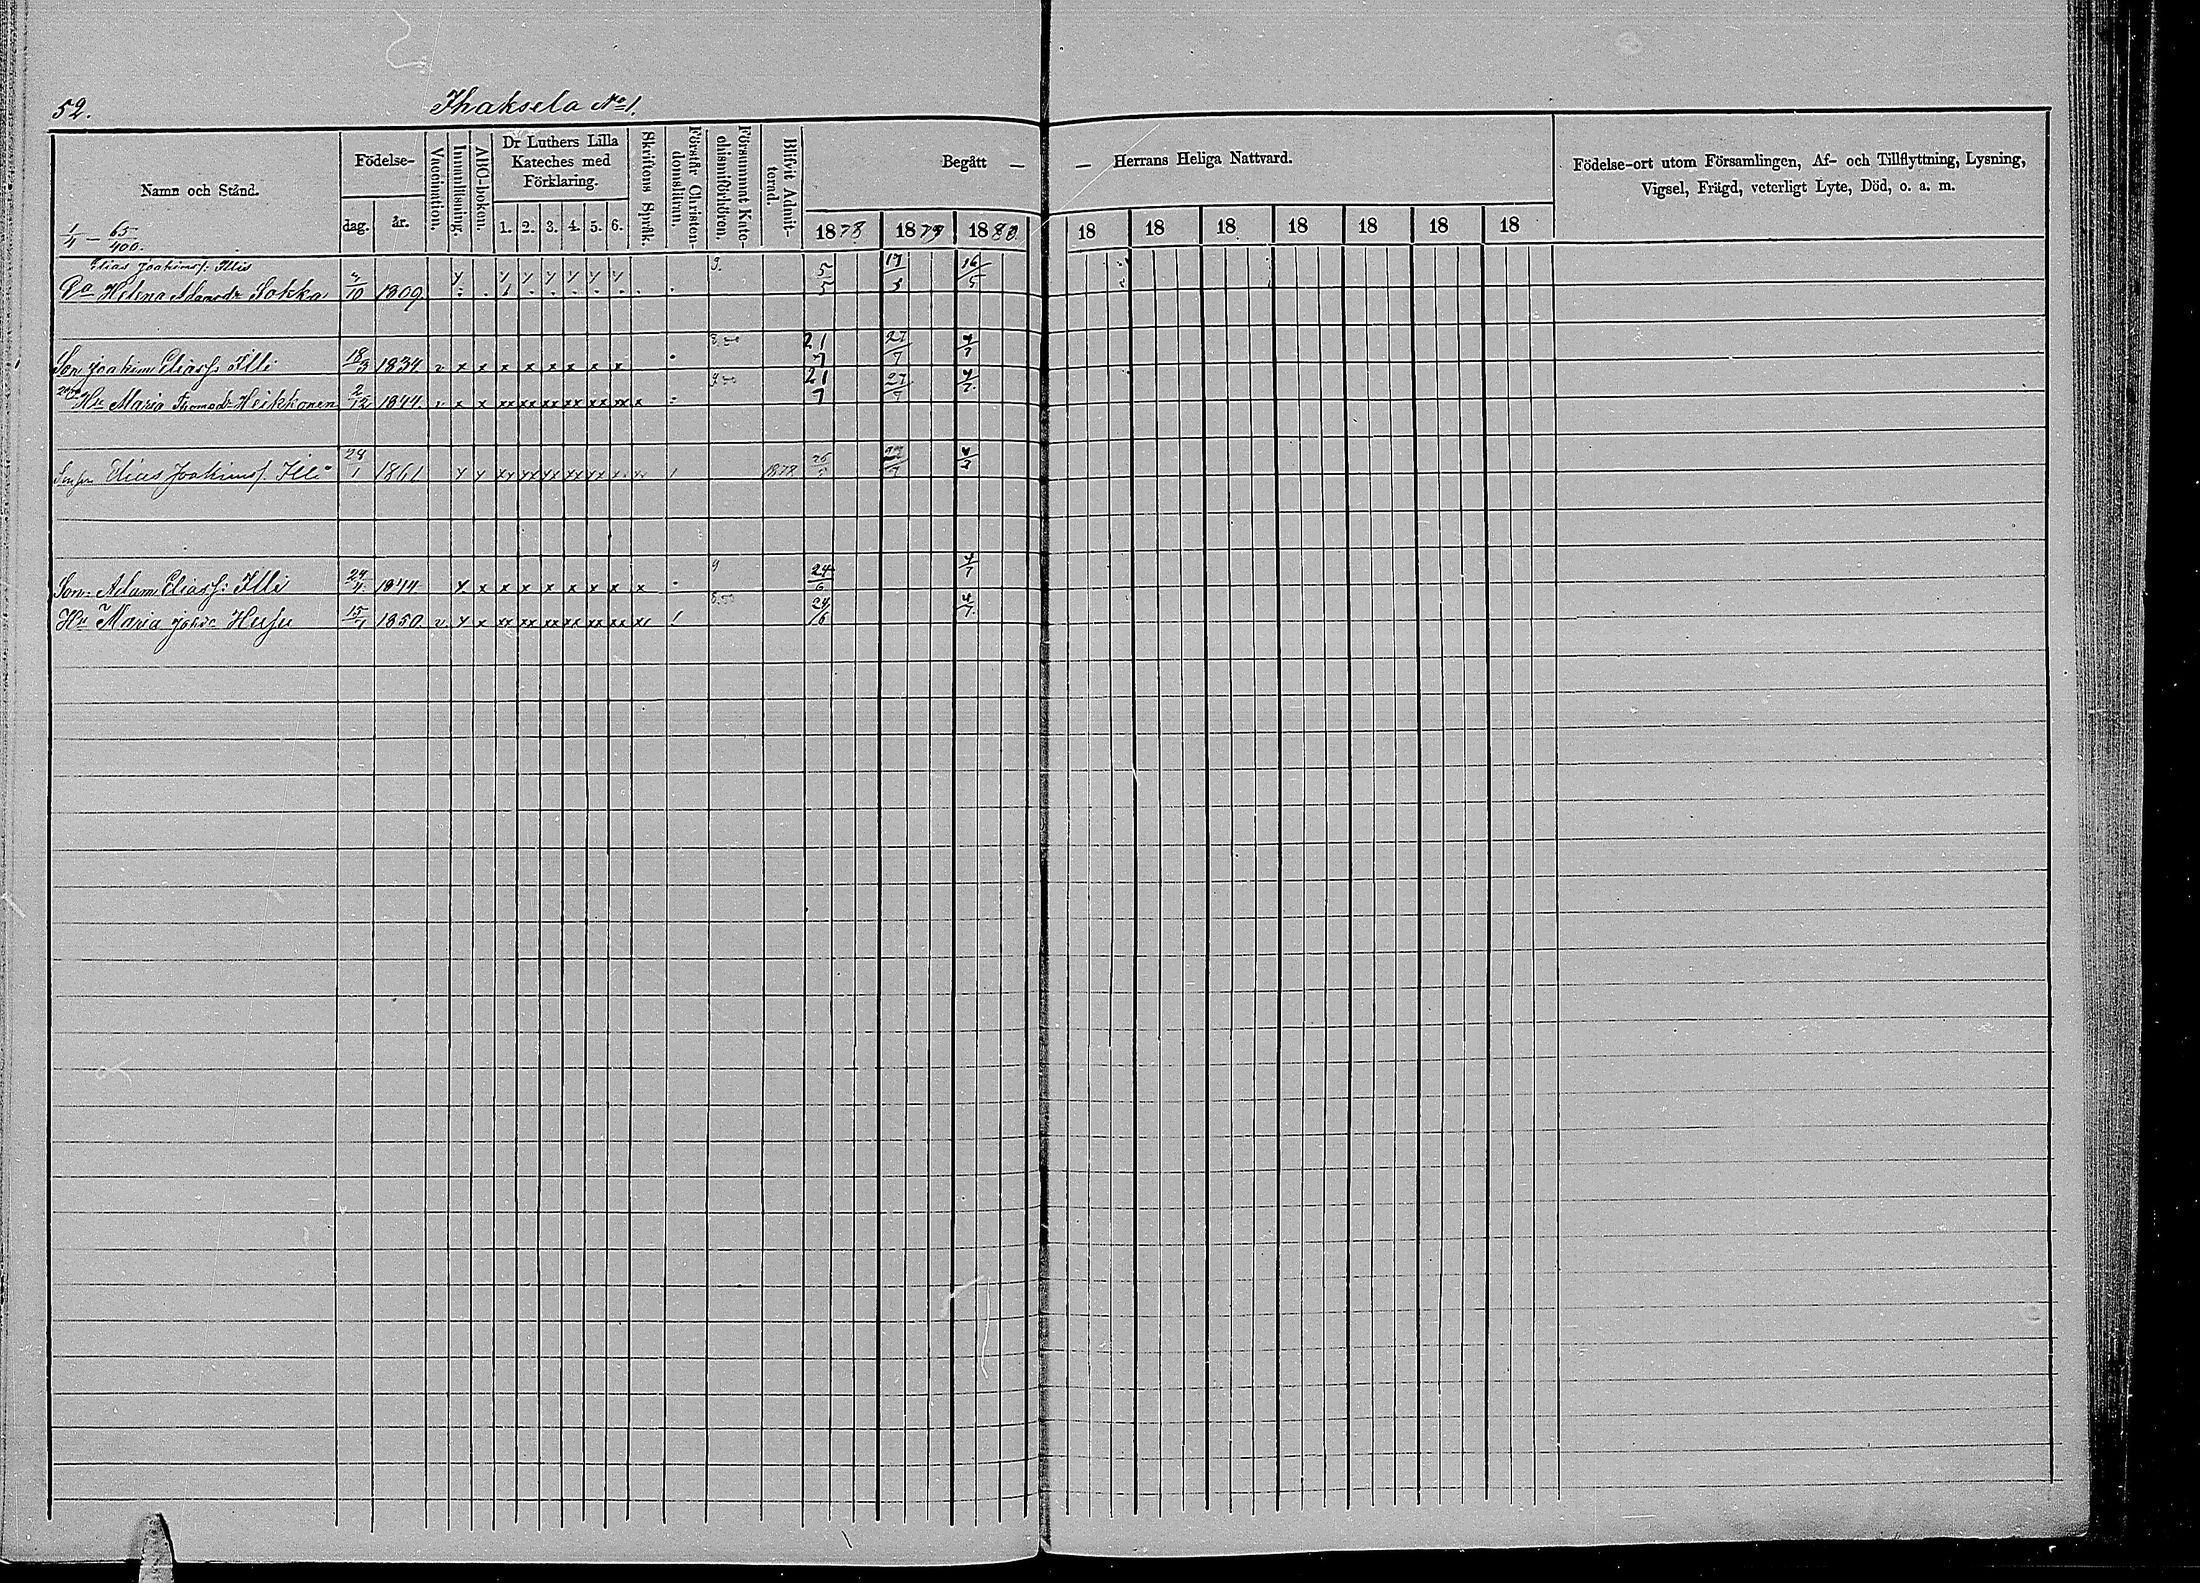 52. Ihaksela No 1.
Namn och Stånd.
1/4 — 65/400.
Födelse-
dag. år.
Vaccination.
Innanläsning.
ABC-boken.
Dr Luthers Lilla
Kateches med
Förklaring.
1. 2. 3. 4. 5. 6.
Skriftens Språk.
Förstår Christen-
domsläran.
Försummat Kate-
chismiförhören.
Blifvit Admit-
terad.
Begått — — Herrans Heliga Nattvard.
1878. 1879 1880. 18 18 18 18 18 18 18
Födelse-ort utom Församlingen, Af- och Tillflyttning, Lysning,
Vigsel, Frägd, veterligt Lyte, Död, o. a. m.
Elias Joakimss: Illis
Da Helena Adamsdr Sokka /10 1809 9. 5/5 17/5 16/5
Son Joakim Eliass Illi 18/3 1834 v x x x x x x x x 21/7 27/7 4/7
Hu Maria Thomasdr Heikkonen 2/12 1844. v x x xx xx xx xx xx xx x 21/7 27/7 4/7.
Sonson Elias Joakimss. Illi 28/1 1861 1878 27/7 4/7
Son: Adam Eliass: Illi 24/4 1844 x x x x x x x x x 9 24/6 4/7
Hu Maria Johsdr Husu 15/7 1850 v x x xx xx xx xx xx xx 24/6 4/7.